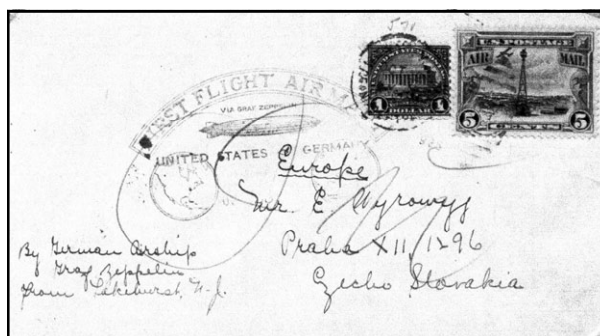 U.S. POSTAGE
AIR MAIL
1 DOLLAR 1
5 CENTS 5
FIRST FLIGHT AIR
VIA GRAF ZEPPELIN
UNITED STATES GERMANY
Europe
Mr E Wyrowyg
Praha XII, 1296
Czecho Slovakia
By German Airship
Graf Zeppelin
from Lakehurst, N-J.